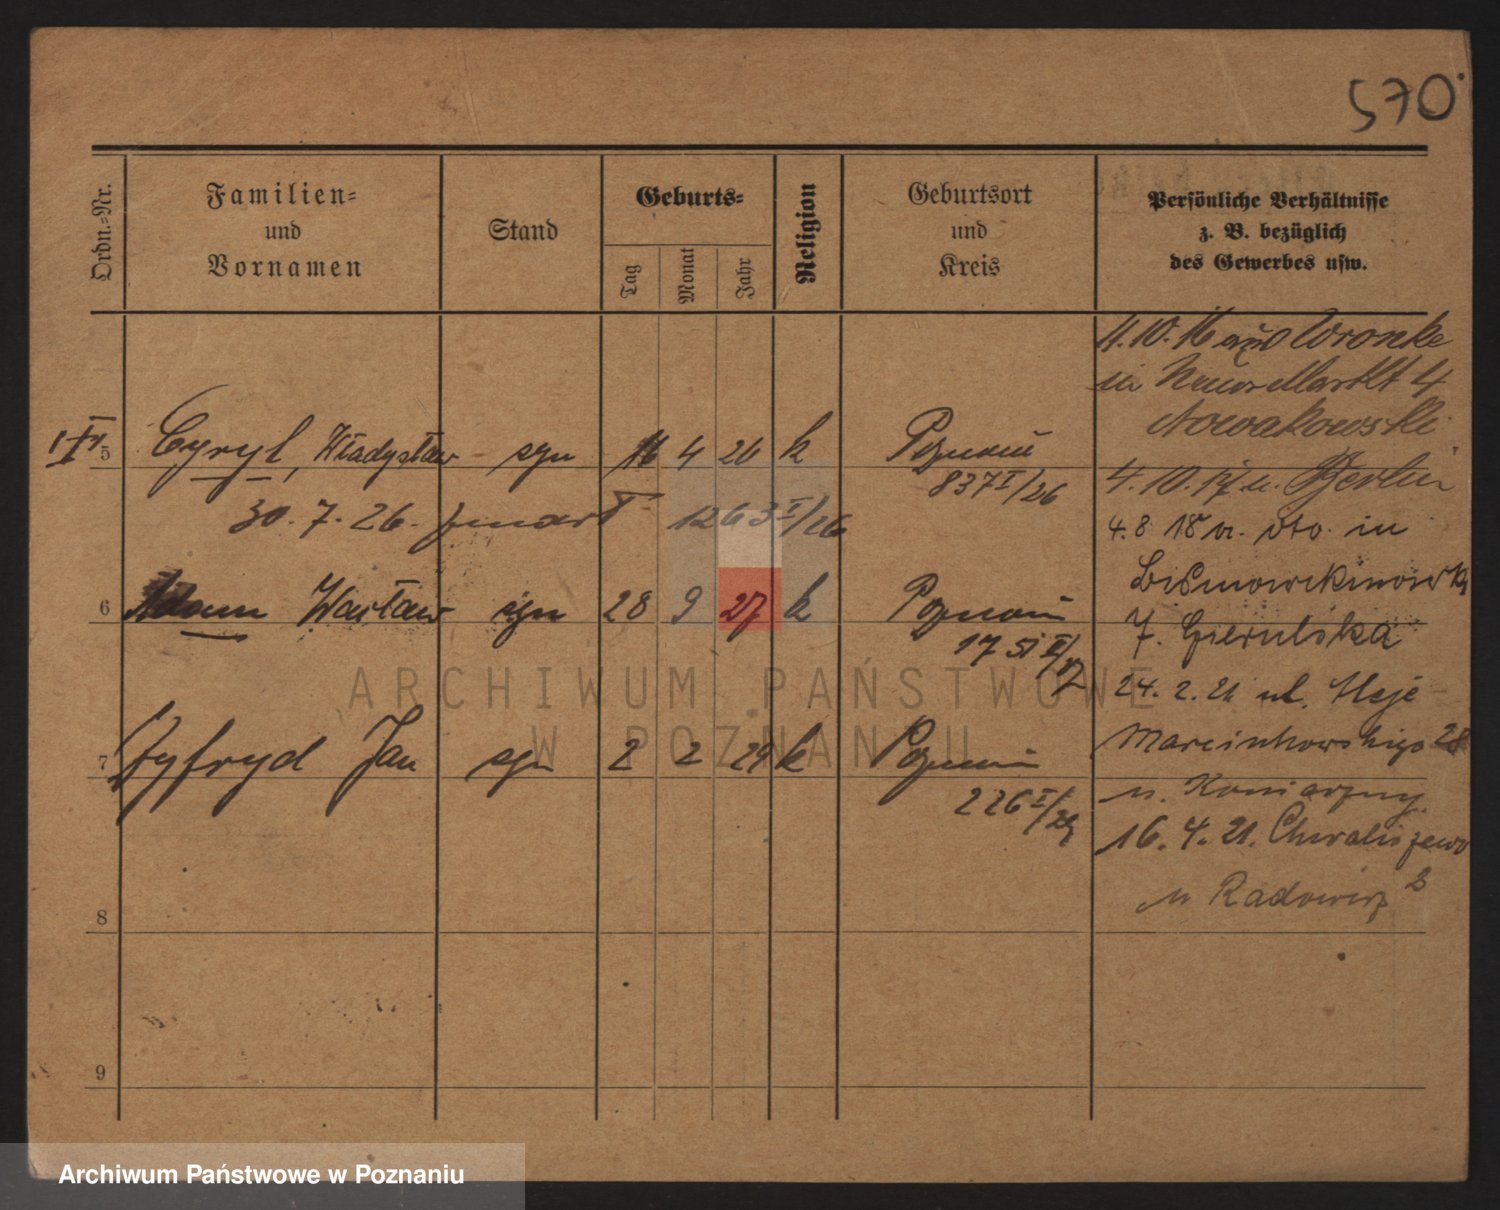 570
Ordn.=Nr.
Familien=
und
Vornamen
Stand
Geburts=
Tag
Monat
Jahr
Religion
Geburtsort
und
Kreis
Persönliche Verhältnisse
z. B. bezüglich
des Gewerbes usw.
4.10.16 aus Wronke
in Neuer Markt 4
Nowakowski
5 Cyryl, Władysław syn 16 4 26 k Poznań
837 I/26
4.10.17 n. Berlin
30.7.26. zmarł 1263 I/26
4.8.18 v. dto. in
6 Adam Wacław syn 28 9 27 k Poznań
7. Gierulska
24.2.21 ul. Aleje
Marcinkowskiego 28
7 Zyfryd Jan syn 2 2 29 k Poznań
226 I/29
16.4.21. Chwaliszewo
8
9
ARCHIWUM PAŃSTWOWE
W POZNANIU
Archiwum Państwowe w Poznaniu